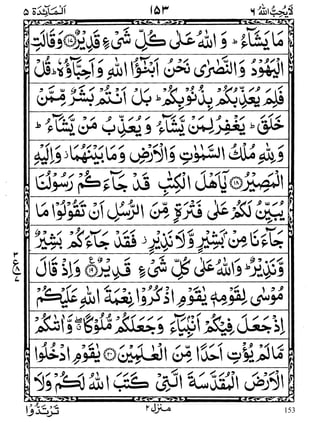 لَا يُحِبُّ اللهُ ٦ ١٥٣ اَلْمَآئِدَة ٥
مَا يَشَآءُ ؕ وَ اللّٰهُ عَلٰى كُلِّ شَىْءٍ قَدِيْرٌ ﴿۱۷﴾ وَ قَالَتِ
الْيَهُوْدُ وَ النَّصٰرٰى نَحْنُ اَبْنٰٓؤُا اللّٰهِ وَ اَحِبَّآؤُهٗ ؕ قُلْ
فَلِمَ يُعَذِّبُكُمْ بِذُنُوْبِكُمْ ؕ بَلْ اَنْتُمْ بَشَرٌ مِّمَّنْ
خَلَقَ ؕ يَغْفِرُ لِمَنْ يَّشَآءُ وَ يُعَذِّبُ مَنْ يَّشَآءُ ؕ
وَ لِلّٰهِ مُلْكُ السَّمٰوٰتِ وَ الْاَرْضِ وَ مَا بَيْنَهُمَا ؗ وَ اِلَيْهِ
الْمَصِيْرُ ﴿۱۸﴾ يٰۤاَهْلَ الْكِتٰبِ قَدْ جَآءَكُمْ رَسُوْلُنَا
يُبَيِّنُ لَكُمْ عَلٰى فَتْرَةٍ مِّنَ الرُّسُلِ اَنْ تَقُوْلُوْا مَا
جَآءَنَا مِنْۢ بَشِيْرٍ وَّ لَا نَذِيْرٍ ؗ فَقَدْ جَآءَكُمْ بَشِيْرٌ
وَّ نَذِيْرٌ ؕ وَ اللّٰهُ عَلٰى كُلِّ شَىْءٍ قَدِيْرٌ ﴿۱۹﴾ وَ اِذْ قَالَ
مُوْسٰى لِقَوْمِهٖ يٰقَوْمِ اذْكُرُوْا نِعْمَةَ اللّٰهِ عَلَيْكُمْ
اِذْ جَعَلَ فِيْكُمْ اَنْۢبِيَآءَ وَ جَعَلَكُمْ مُّلُوْكًا ۖۗ وَّ اٰتٰىكُمْ
مَّا لَمْ يُؤْتِ اَحَدًا مِّنَ الْعٰلَمِيْنَ ﴿۲۰﴾ يٰقَوْمِ ادْخُلُوا
الْاَرْضَ الْمُقَدَّسَةَ الَّتِىْ كَتَبَ اللّٰهُ لَكُمْ وَ لَا
153 منزل ٢ تَرْتَدُّوْا